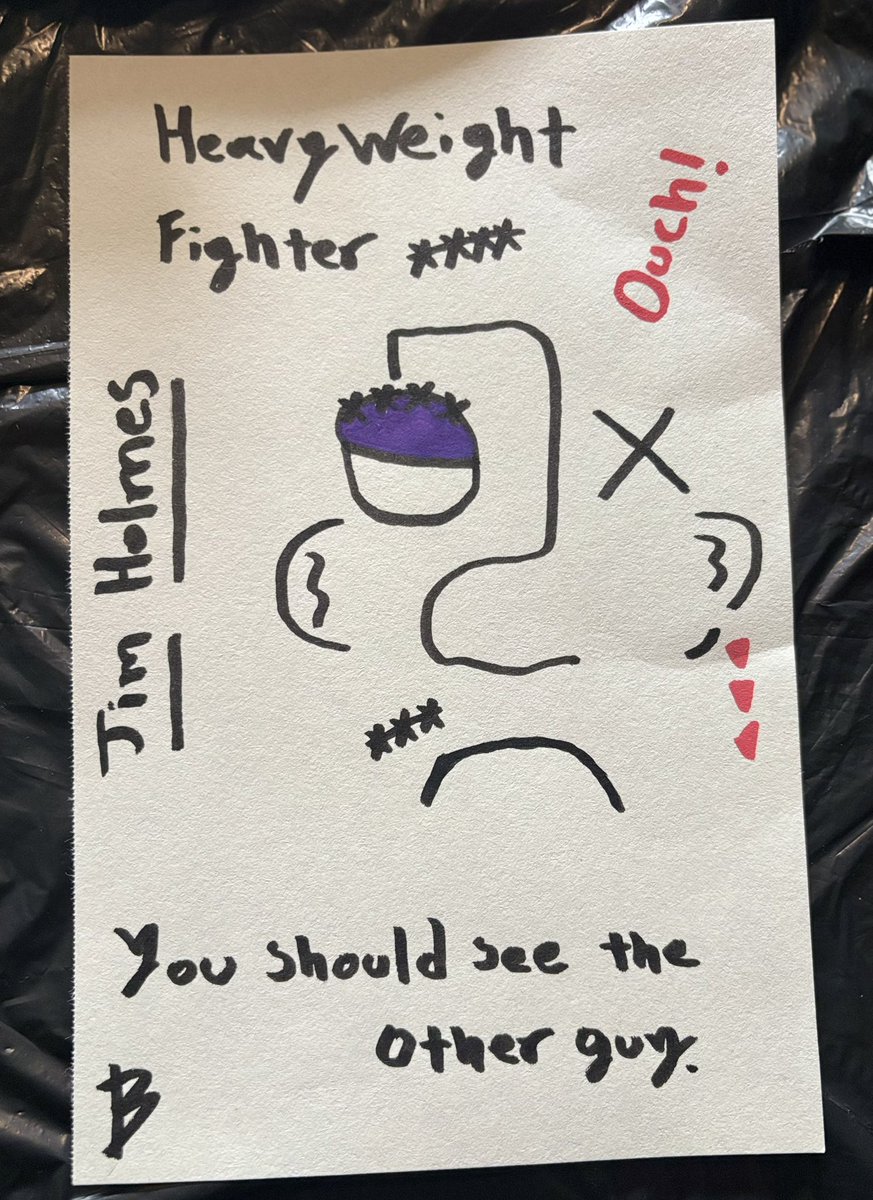 HeavyWeight
Fighter ****
Ouch!
Jim Holmes
***
You should see the
other guy.
B